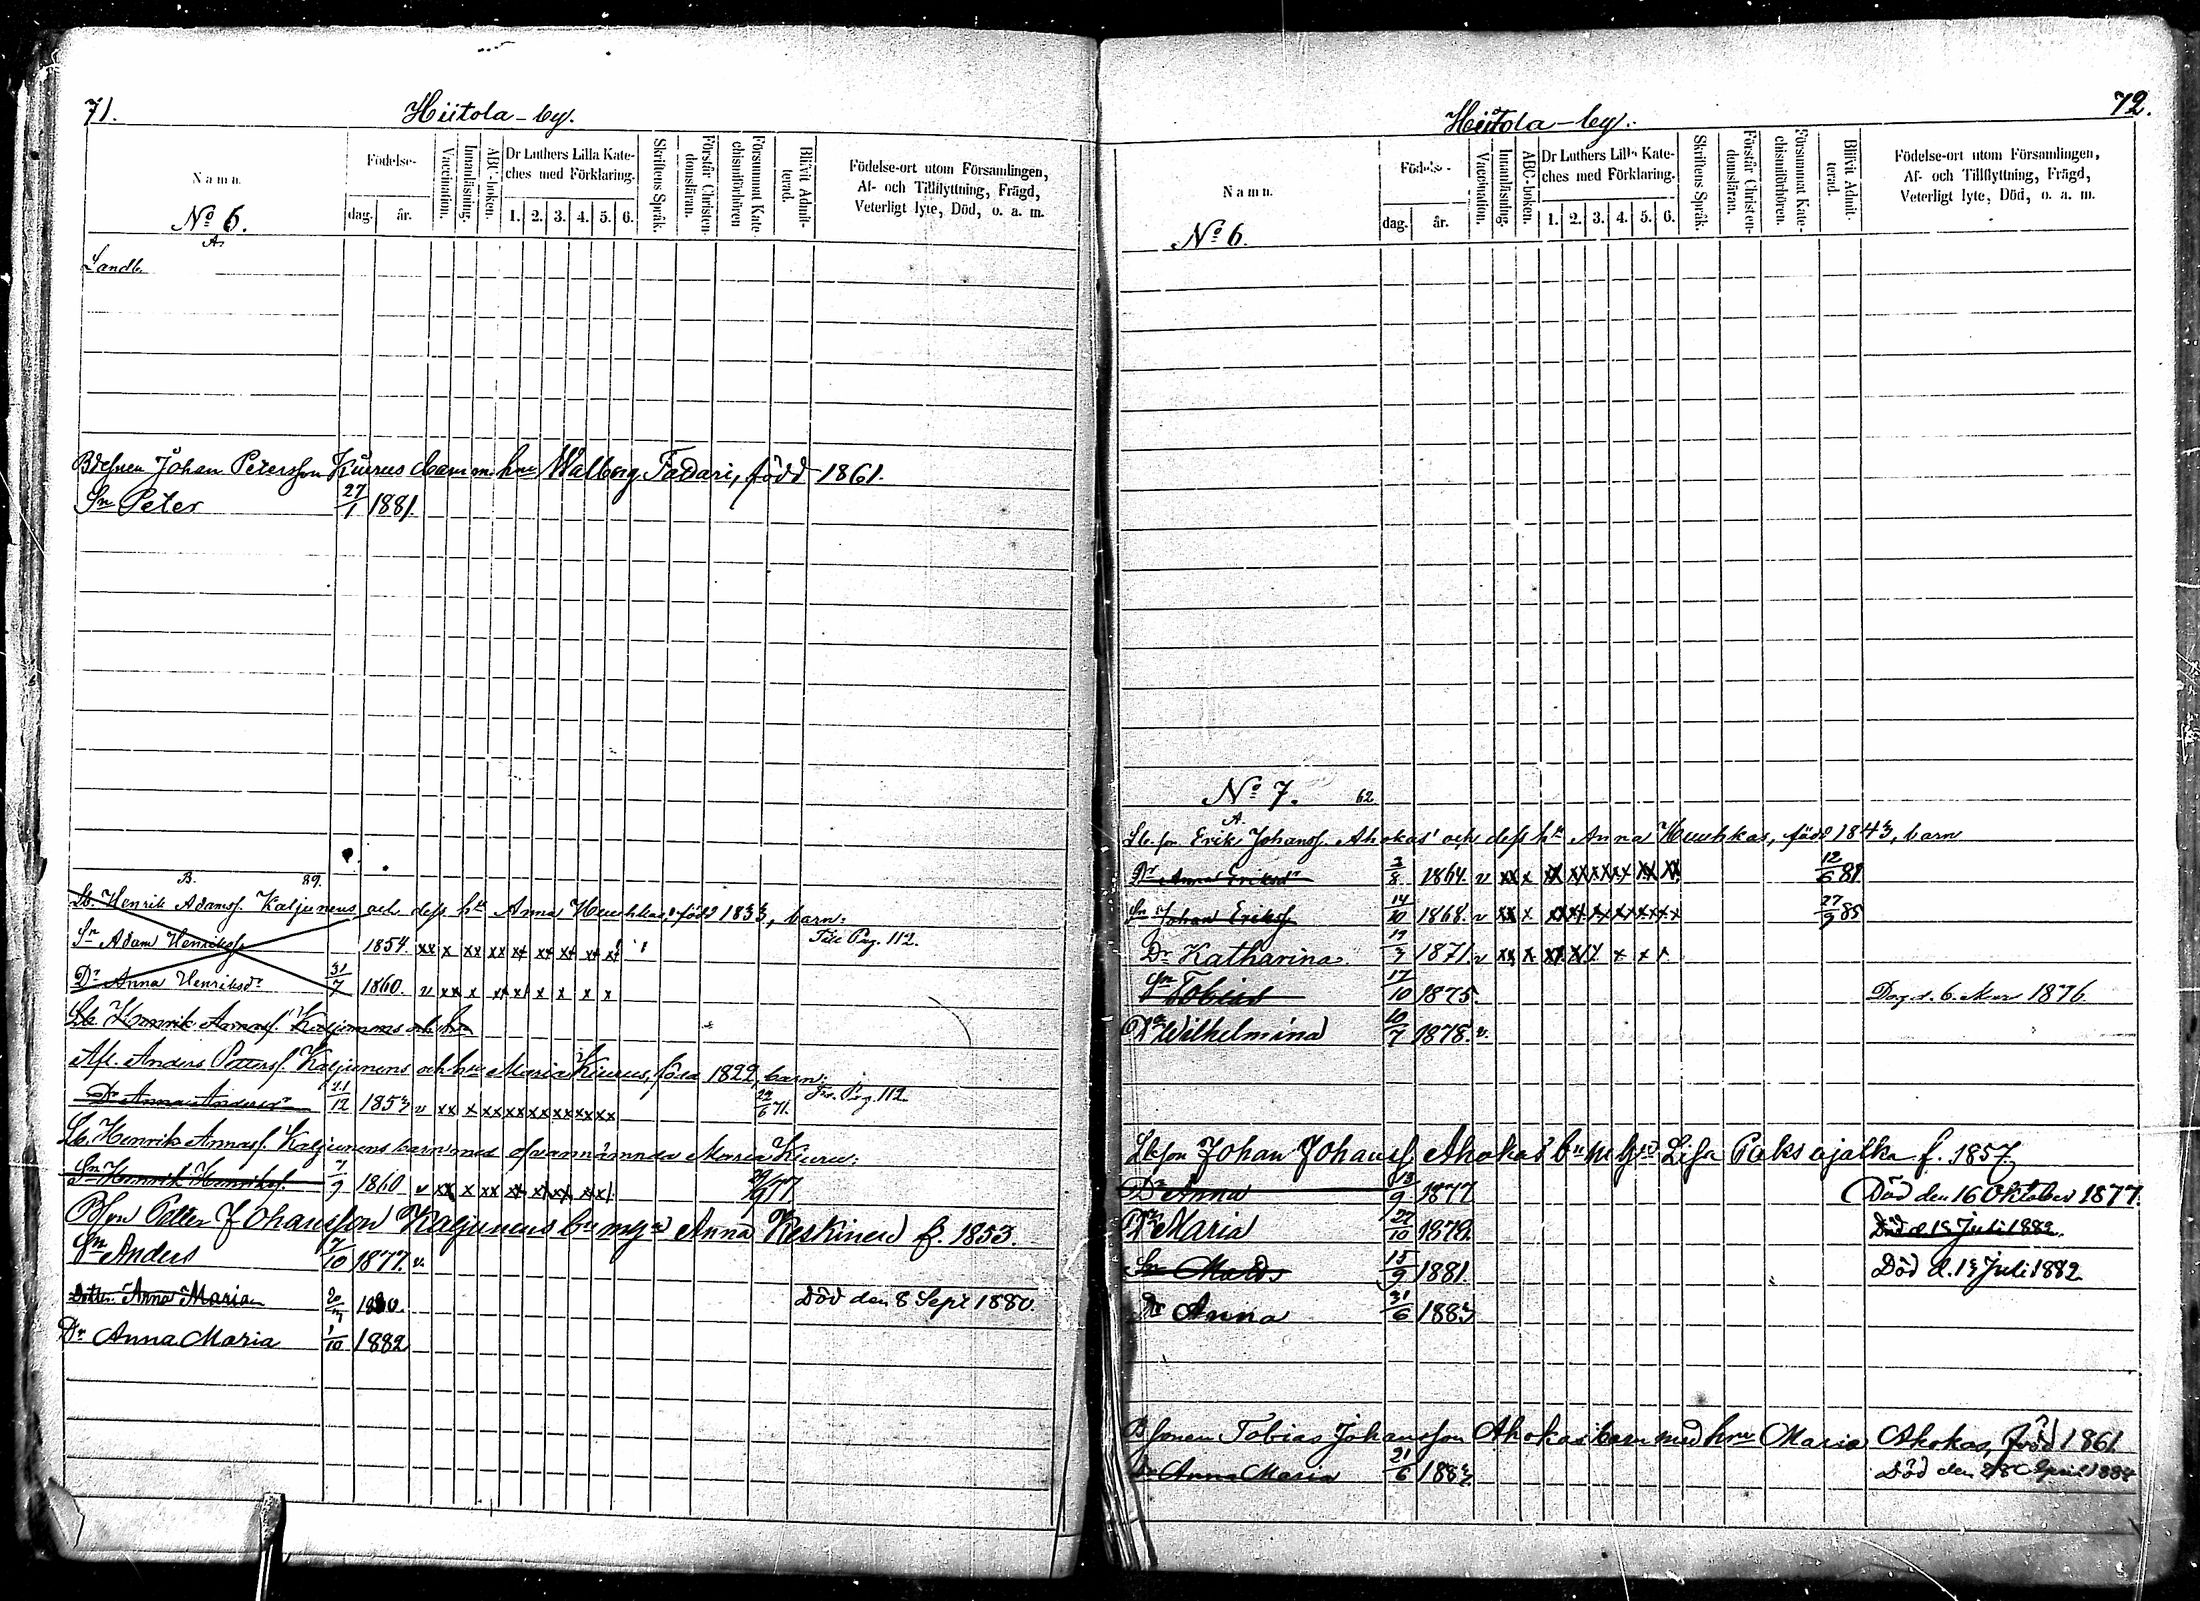 71.
Hiitola-by.
Namn.
Födelse-
dag.
år.
Vaccination.
Innanläsning.
ABC-boken.
Dr Luthers Lilla Kate-
ches med Förklaring.
1. 2. 3. 4. 5. 6.
Skriftens Språk.
Förstår Christen-
domsläran.
Försummat Kate-
chismiförhören
Blifvit Admit-
terad.
Födelse-ort utom Församlingen,
Af- och Tillflyttning, Frägd,
Veterligt lyte, Död, o. a. m.
No 6.
A.
Landb.
Johan Petersson Kiurus barn m. hru Walborg Tattari, född 1861.
Sn Peter 27/1 1881.
B. 89.
Lb. Henrik Adamsf. Kaljunens och dess hu Anna Huuhka, född 1833, barn:
Sn Adam Henriksf. 1854. xx x xx xx xx xx xx xx Pag. 112.
Dr Anna Henriksdr 31/7 1860. v xx x xx x x x x x
Lb. Henrik Kaljunens och
Afl. Anders Pettersf. Kaljunens och hu Maria Kiurus, föda 1822, barn:
Dr Anna Andersdr 21/12 1853 v xx x xx xx xx xx xx xx 22/6 71. Pag. 112.
Lb. Henrik Kaljunens barn med ofvannämnda Maria Kiuru:
Sn Henrik Henriksf. 7/9 1860 v xx x xx xx xx xx xx 29/9 77
Petter Johansson Kaljunens bn m Anna Keskinen f. 1853.
Sn Anders 7/10 1877. v.
Dotter Anna Maria 1880. Död den 8 Sept 1880.
Dr Anna Maria 1/10 1882
72.
Hiitola-by.
Namn.
Födelse-
dag.
år.
Vaccination.
Innanläsning.
ABC-boken.
Dr Luthers Lilla Kate-
ches med Förklaring.
1. 2. 3. 4. 5. 6.
Skriftens Språk.
Förstår Christen-
domsläran.
Försummat Kate-
chismiförhören.
Blifvit Admit-
terad.
Födelse-ort utom Församlingen,
Af- och Tillflyttning, Frägd,
Veterligt lyte, Död, o. a. m.
No 6.
No 7. 62
A.
Lb. son Erik Johansf. Ahokas' och dess hu Anna Huuhkas, född 1843, barn
Dr Anna Eriksdr 3/8 1864. v xx x xx xx xx xx xx xx 12/6 81
Sn Johan Eriksf 14/10 1868. v xx x xx xx xx xx xx xx 27/9 85
Dr Katharina 19/3 1871. v xx x xx xx x x x
Sn Tobias 17/10 1875. 6. 1876.
Dr Wilhelmina 10/7 1878. v.
Lbson Johan Johansf Ahokas' bn m Lisa Paksujalka f. 1857.
Dr Anna 13/9 1877 Död den 16 Oktober 1877.
Dr Maria 27/10 1879. Död d. 13 Juli 1882.
Sn Mats 15/9 1881. Död d. 13 Juli 1882.
Dr Anna 31/6 1883
Tobias Johansson Ahokas' barn med hru Maria Ahokas, född 1861
Dr Anna Maria 21/6 1883 Död den 28 April 1884